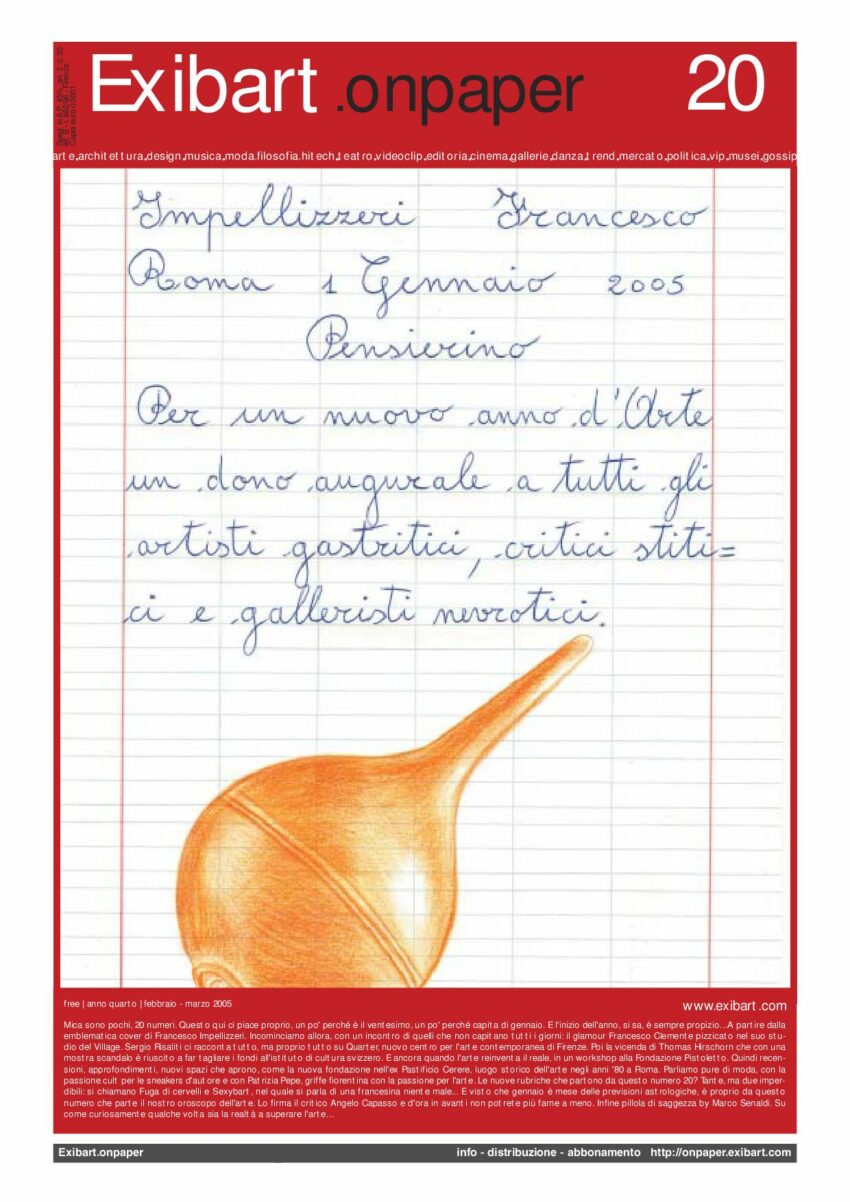 Sped. in A.P. 45% art. 2. c. 20
Copia euro 0,0001
Exibart .onpaper 20
arte.architettura.design.musica.moda.filosofia.hitech.teatro.videoclip.editoria.cinema.gallerie.danza.trend.mercato.politica.vip.musei.gossip
Impellizzeri Francesco
Roma 1 Gennaio 2005
Pensierino
Per un nuovo anno d'Arte
un dono augurale a tutti gli
artisti gastritici, critici stiti=
ci e galleristi nevrotici.
free | anno quarto | febbraio - marzo 2005
www.exibart.com
Mica sono pochi, 20 numeri. Questo qui ci piace proprio, un po' perché è il ventesimo, un po' perché capita di gennaio. E l'inizio dell'anno, si sa, è sempre propizio...A partire dalla
emblematica cover di Francesco Impellizeri. Incominciamo allora, con un incontro di quelli che non capitano tutti i giorni: il glamour Francesco Clemente pizzicato nel suo stu-
dio del Village. Sergio Risaliti ci racconta tutto, ma proprio tutto su Quarter, nuovo centro per l'arte contemporanea di Firenze. Poi la vicenda di Thomas Hirschorn che con una
mostra scandalo è riuscito a far tagliare i fondi all'istituto di cultura svizzero. E ancora quando l'arte reinventa il reale, in un workshop alla Fondazione Pistoletto. Quindi recen-
sioni, approfondimenti, nuovi spazi che aprono, come la nuova fondazione nell'ex Pastificio Cerere, luogo storico dell'arte negli anni '80 a Roma. Parliamo pure di moda, con la
passione cult per le sneakers d'autore e con Patrizia Pepe, griffe fiorentina con la passione per l'arte. Le nuove rubriche che partono da questo numero 20? Tante, ma due imper-
dibili: si chiamano Fuga di cervelli e Sexybart, nel quale si parla di una francesina niente male... E visto che gennaio è mese delle previsioni astrologiche, è proprio da questo
numero che parte il nostro oroscopo dell'arte. Lo firma il critico Angelo Capasso e d'ora in avanti non potrete più farne a meno. Infine pillola di saggezza by Marco Senaldi. Su
come curiosamente qualche volta sia la realtà a superare l'arte...
Exibart.onpaper
info - distribuzione - abbonamento http://onpaper.exibart.com